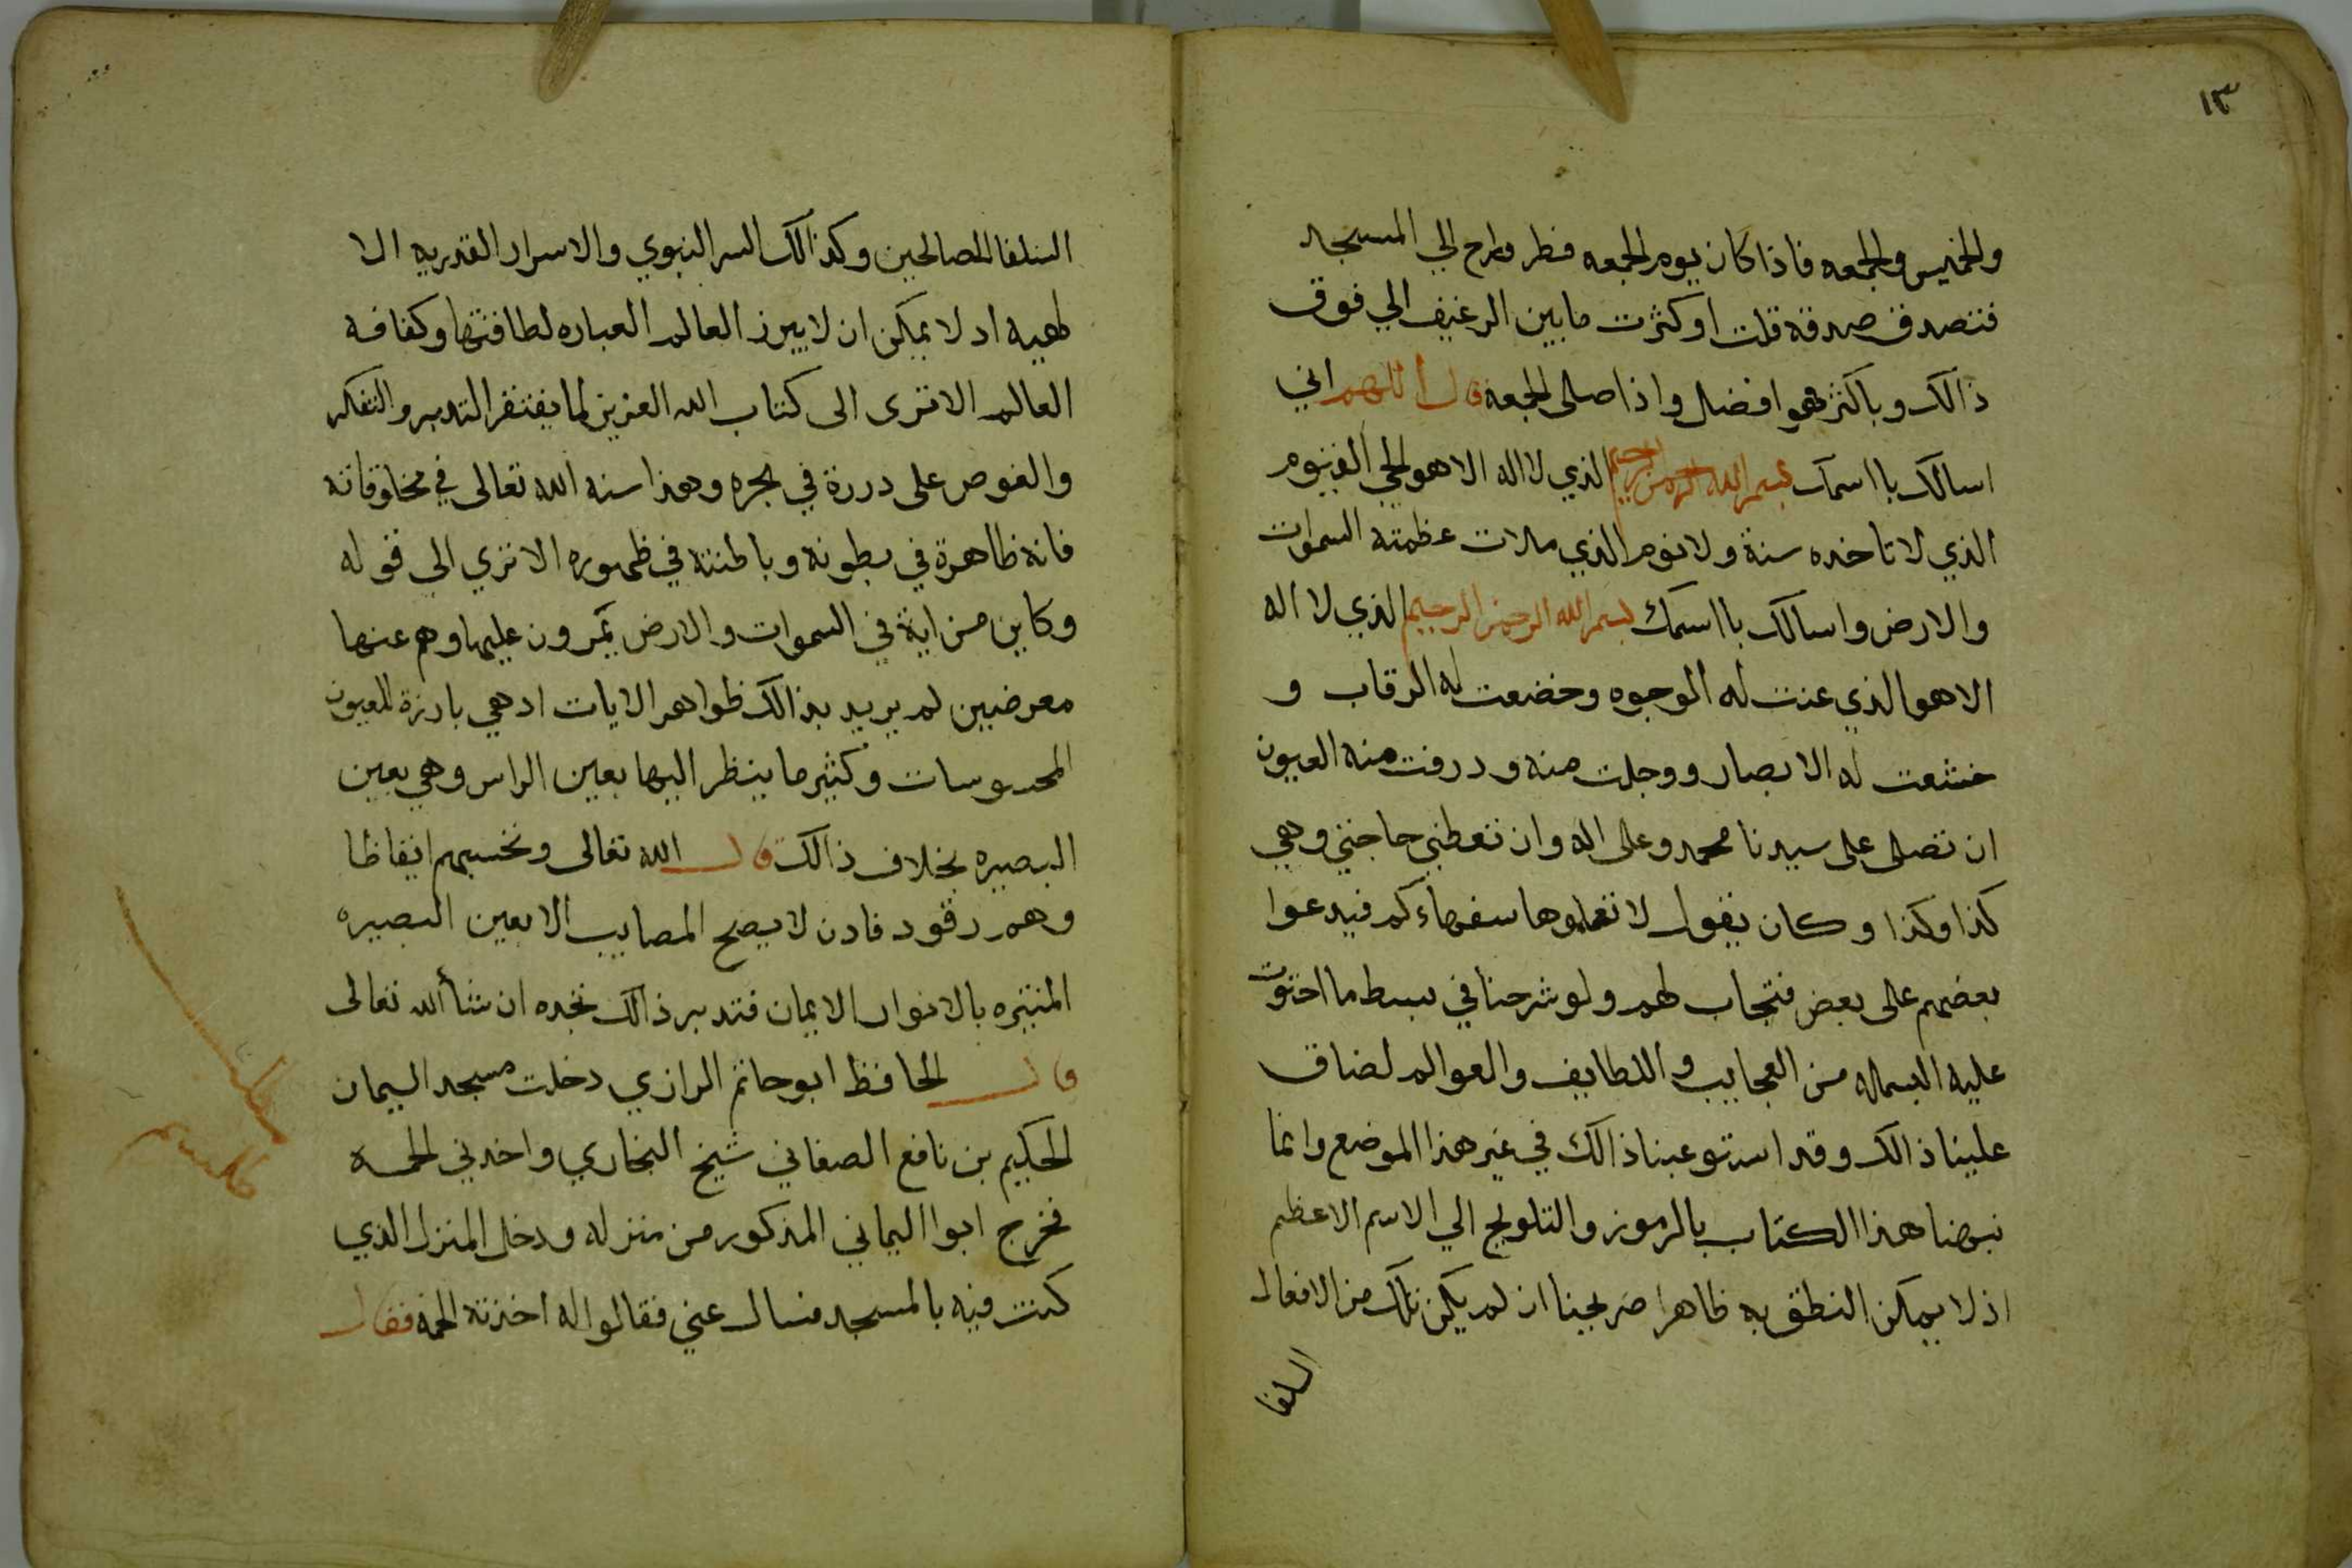 ١٣
والخميس والجمعه فاذا كان يوم الجمعه فطر وراح الي المسجد
فتصدق صدقة قلت او كثرت ما بين الرغيف الي فوق
ذالك وبا كثر هو افضل واذا صلى الجمعة قال اللهم اني
اسالك با اسمك بسم الله الرحمن الرحيم الذي لا اله الا هو الحي القيوم
الذي لا تاخده سنة ولا نوم الذي ملات عظمته السموات
والارض واسالك با اسمك بسم الله الرحمن الرحيم الذي لا اله
الا هو الذي عنت له الوجوه وخضعت له الرقاب و
خشعت له الابصار ووجلت منه ودرفت منه العيون
ان تصلى على سيدنا محمد وعلى اله وان تعطني حاجتي وهي
كذا وكذا وكان يقول لا تعلموها سفهاءكم فيدعوا
بعضهم على بعض فتجاب لهم ولو شرحنا في بسط ما احتوت
عليه البسمله من العجايب واللطايف والعوالم لضاق
علينا ذالك وقد استوعبنا ذالك في غير هذا الموضع وانما
نبهنا هذا الكتاب بالرموز والتلويح الي الاسم الاعظم
اذ لا يمكن النطق به ظاهرا صريحنا ان لم يكن تلك من الافعال
السلفا
السلفا الصالحين وكذالك السر النبوي والاسرار القدريه الا
لهيه اد لا يمكن ان لا يبرز العالم العباره لطافتها وكفافة
العالم الا ترى الى كتاب الله العزيز لما يفتقر التدبير والتفكر
والغوص على دررة في بحره وهذا سنه الله تعالى في مخلوقاته
فانه ظاهرة في بطونه وباطنته في ظهوره الا تري الي قوله
وكاين من اية في السموات والارض يمرون عليها وهم عنها
معرضين لم يريد بذالك ظواهر الايات ادهي بارزة للعيون
المحسوسات وكثير ما ينظر اليها بعين الراس وهي بعين
البصيره بخلاف ذالك قال الله تعالى وتحسبهم ايقاظا
وهم رقود فادن لا يصح المصايب الا بعين البصيره
المنيره بالانوار الايمان فتدبر ذالك تجده ان شاء الله تعالى
قال الحافظ ابو حاتم الرازي دخلت مسجد اليمان
الحكيم بن نافع الصفاني شيخ البخاري واخدني الحمه
فخرج ابوا اليماني المذكور من منزله ودخل المنزل الذي
كنت فيه بالمسجد فسال عني فقالوا له اخذته الحمه فقال